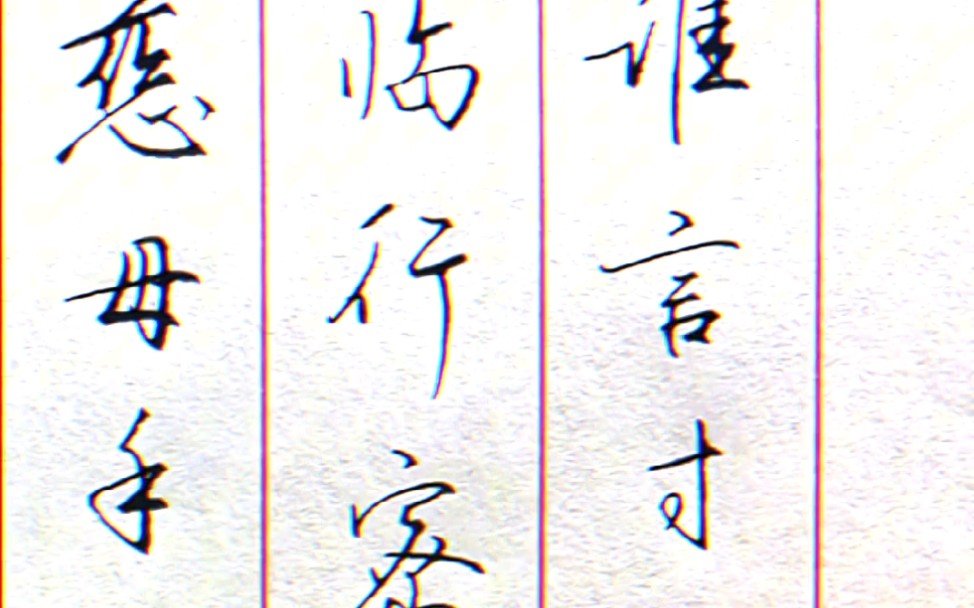 慈母手
临行密
谁言寸